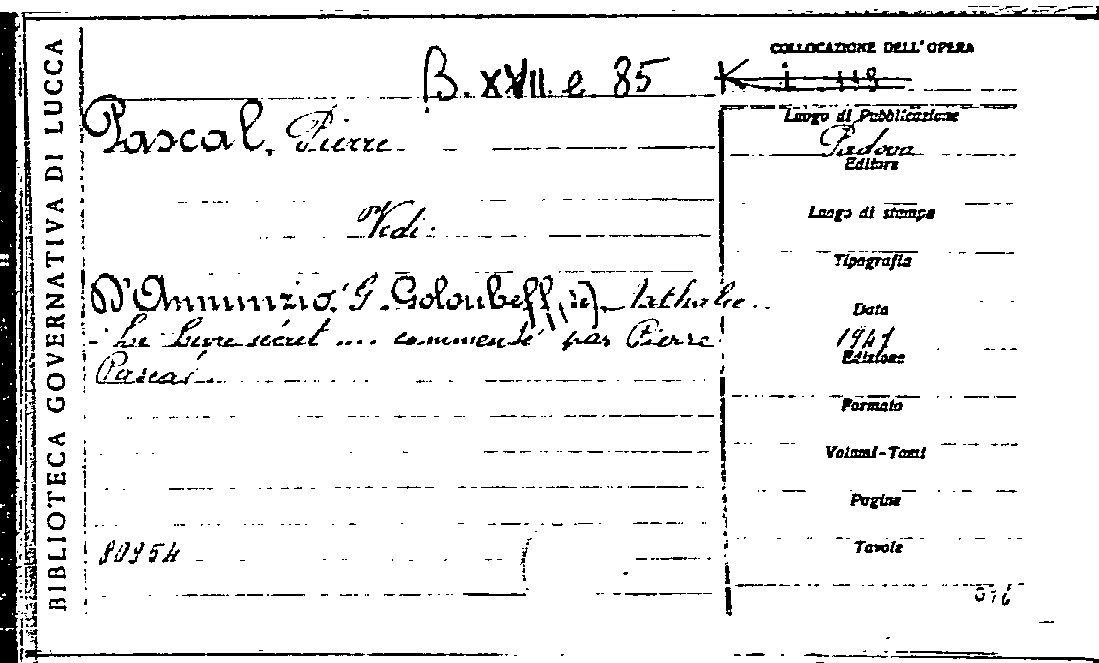 BIBLIOTECA GOVERNATIVA DI LUCCA
COLLOCAZIONE DELL'OPERA
B. XVII. e. 85 K i 118
Pascal, Pierre
Luogo di Pubblicazione
Padova
Editore
Vedi:
Luogo di stampa
Tipografia
D'Annunzio, G. Goloubeff, Nathalie
Data
Le livre secret .... commenté par Pierre
1947
Pascal
Edizione
Formato
Volumi-Tomi
Pagine
Tavole